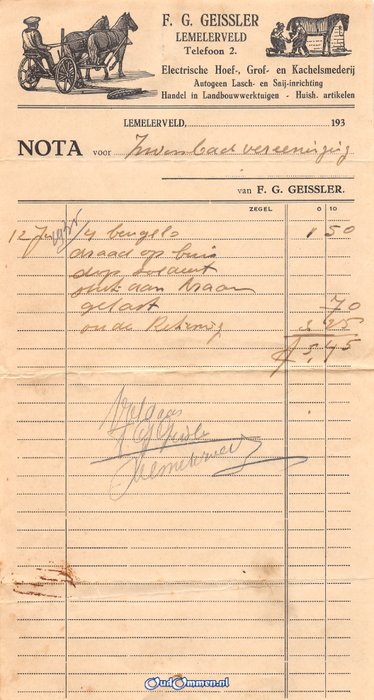 F. G. GEISSLER
LEMELERVELD
Telefoon 2.
Electrische Hoef-, Grof- en Kachelsmederij
Autogeen Lasch- en Snij-inrichting
Handel in Landbouwwerktuigen - Huish. artikelen
LEMELERVELD, 193
NOTA voor Zwembad vereeniging
van F. G. GEISSLER.
ZEGEL 0 10
12 Juni 1935 4 beugels 1 50
draad op buis
dop soldeert
stuk aan Kraan
gelast 70
oude Rekening 3 25
f 5,45
Voldaan
F G Geissler
Lemelerveld
OudOmmen.nl